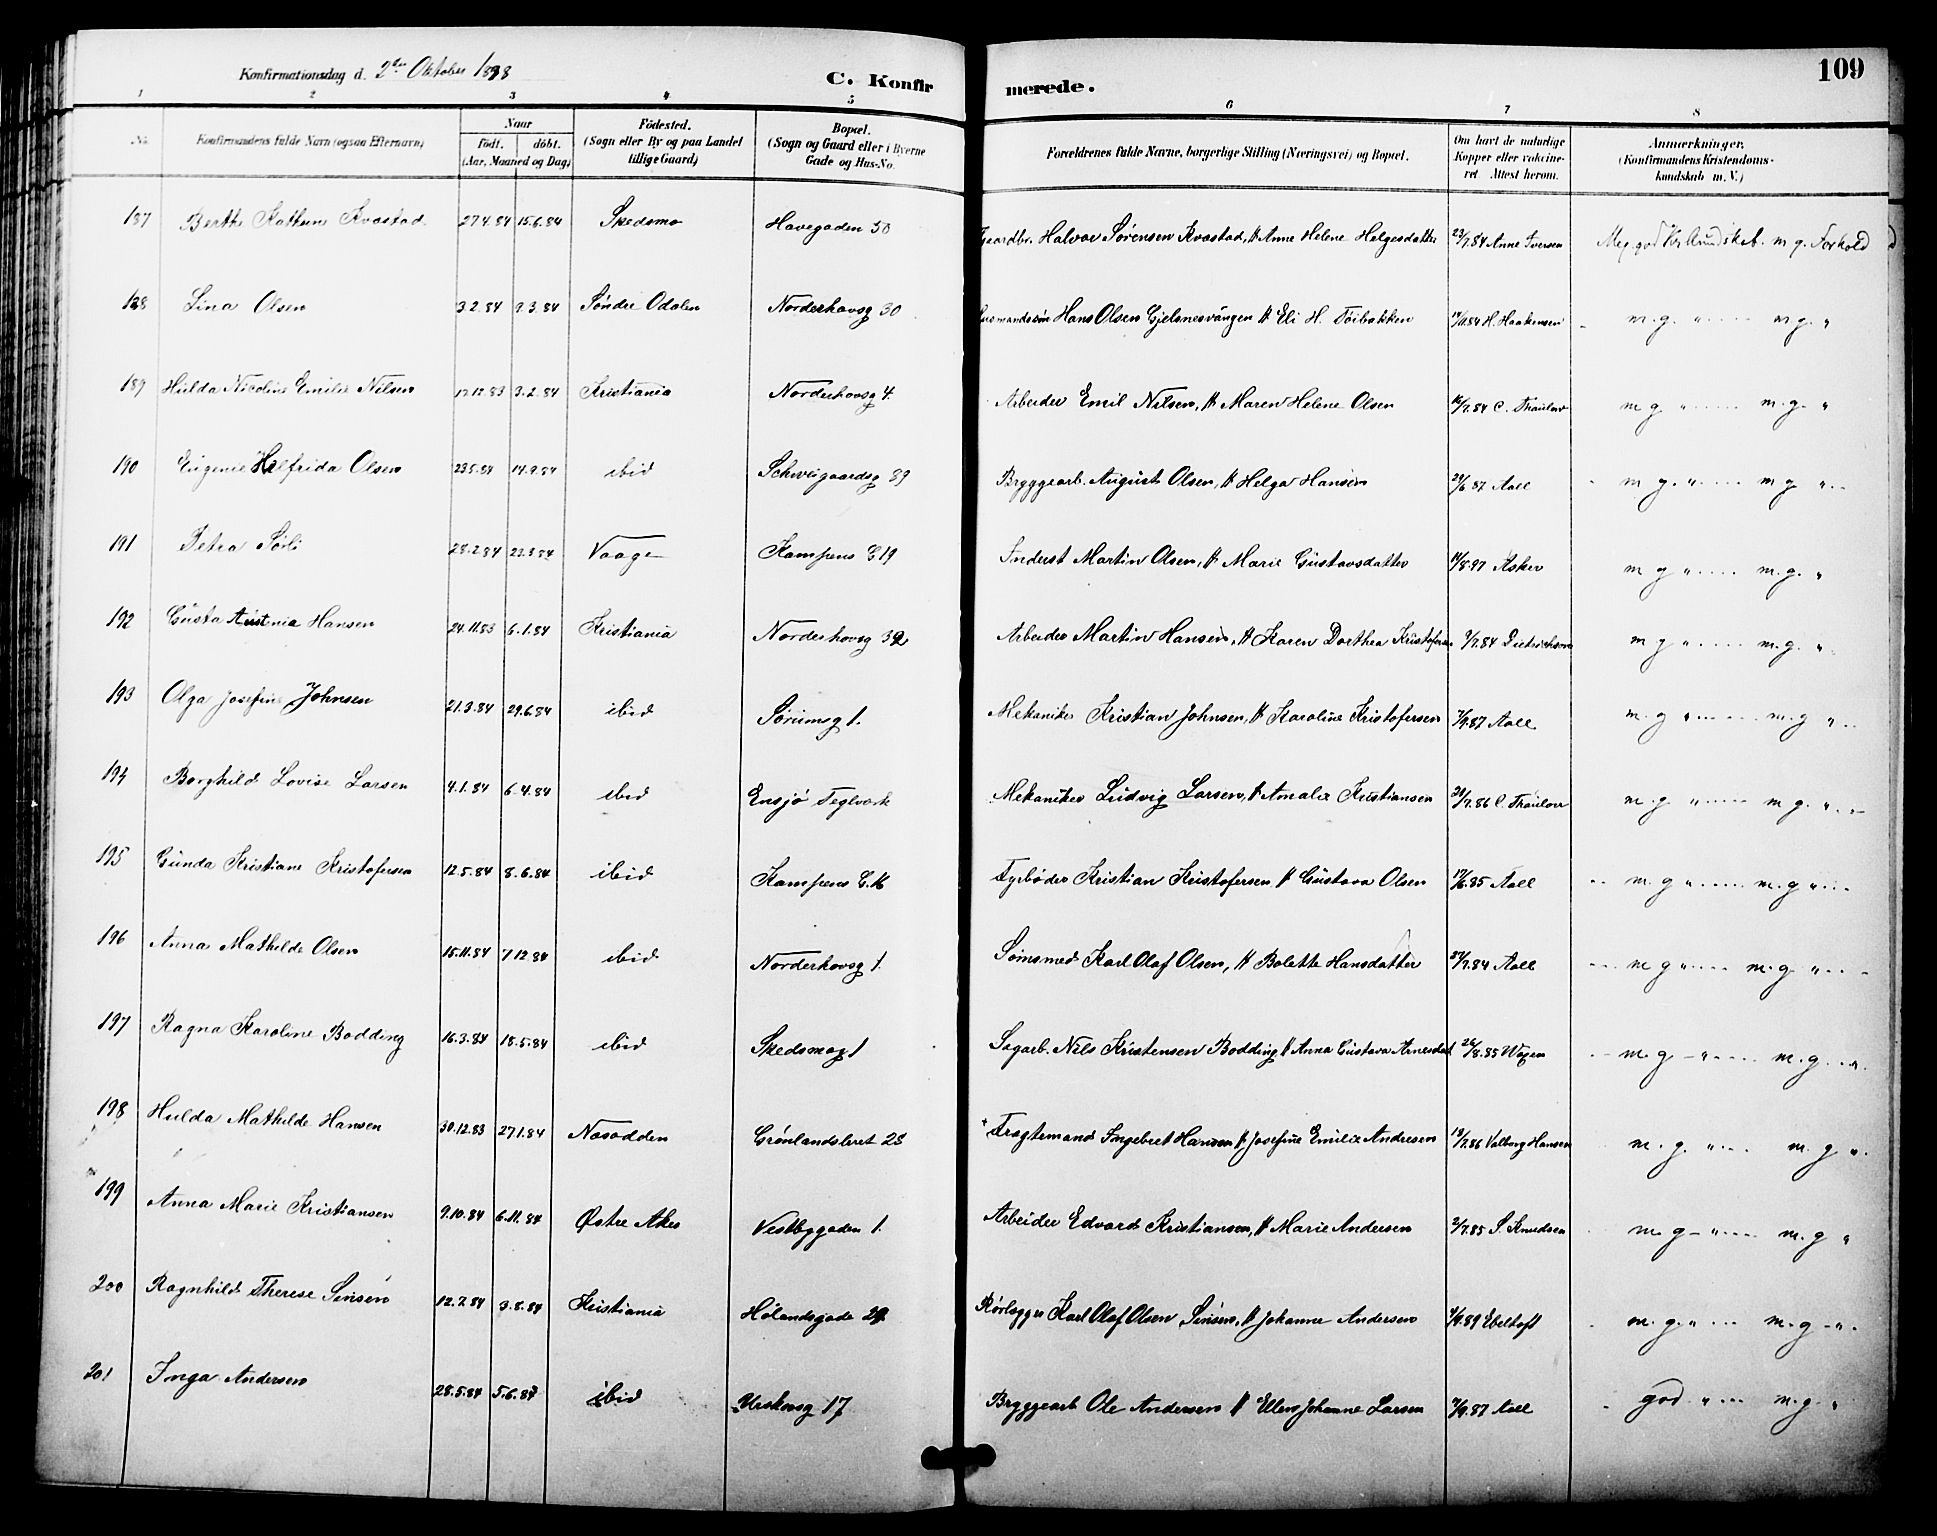 Konfirmationsdag d. 2den Oktober 1898
C. Konfirmerede.
109
1 2 3 4 5 6 7 8
No. Konfirmandens fulde Navn (ogsaa Efternavn) Naar födt. döbt. (Aar, Maaned og Dag) Födested. (Sogn eller By og paa Landet tillige Gaard) Bopæl. (Sogn og Gaard eller i Byerne Gade og Hus-No. Forældrenes fulde Navne, borgerlige Stilling (Næringsvei) og Bopæl. Om havt de naturlige Kopper eller vaccineret Attest herom. Anmærkninger. (Konfirmandens Kristendomskundskab m. V.)
187 Berthe Kathrine Kvastad 27.4.84 15.6.84 Skedsmo Havegaden 50 Gaardbr. Halvor Sørensen Kvastad, & Anne Helene Helgesdatter 23/7.84 Anne Iversen Meg. god Kr. kundskab. m g. Forhold
188 Lina Olsen 3.2.84 9.3.84 Søndre Odalen Norderhovsg 30 Husmandssøn Hans Olsen Gjelsnesvangen & Eli H. Töibakken H. Haakensen m.g. " m g. "
189 Hulda Nicoline Emilie Nilsen 17.12.83 3.2.84 Kristiania Norderhovsg 4. Arbeider Emil Nilsen, & Maren Helene Olsen 16/7.84 C. Thaulow m g. " m.g. "
190 Eugenie Helfrida Olsen 23.5.84 14.9.84 ibid Schweigaardsg 89 Bryggearb. August Olsen, & Helga Hansen 29/6.87 Aall m g. " m g "
191 Petra Sørli 28.2.84 23.3.84 Vaage Kampens G.19 Inderst Martin Olsen, & Marie Gustavsdatter 14/8.97 Asker m g " m.g. "
192 Gusta Austenia Hansen 24.11.83 6.1.84 Kristiania Norderhovsg 32 Arbeider Martin Hansen, & Karen Dorthea Kristofersen 9/7.84 Dietrichson m g " m.g. "
193 Olga Josefine Johnsen 21.3.84 29.6.84 ibid Sørumsg 1. Mekaniker Kristian Johnsen, & Karoline Kristofersen 7/9.87 Aall m.g " m.g "
194 Borghild Lovise Larsen 4.1.84 6.4.84 ibid Ensjø Teglverk Mekaniker Ludvig Larsen, & Amalie Kristiansen 20/7.86 C. Thaulow m.g " m g. "
195 Gunda Kristiane Kristofersen 12.5.84 8.6.84 ibid Kampens G.16 Fyrbøder Kristian Kristofersen & Gustava Olsen 17/6.85 Aall m.g " m.g "
196 Anna Mathilde Olsen 15.11.84 7 12.84 ibid Norderhovsg 1. Sømsmed Karl Olaf Olsen, & Bolette Hansdatter 23/7.84 Aall m g " m.g "
197 Ragna Karoline Bodding 16.3.84 18.5.84 ibid Skedsmog 1 Sagarb. Nils Kristensen Bodding & Anna Gustava Arnesdat 26/8.85 Wogen m.g " m.g "
198 Hulda Mathilde Hansen 30.12.83 27.1.84 Nesodden Grønlandsleret 28 Fragtemand Ingebret Hansen & Josefine Emilie Andresen 18/7.86 Valborg Hansen m.g. " m.g "
199 Anna Marie Kristiansen 9.10.84 6.11.84 Østre Aker Vestbygaden 1. Arbeider Edvard Kristiansen, & Marie Andersen 2/7.85 S. Knudsen m.g " m.g "
200 Ragnhild Therese Sinsen 12.7.84 3.8.84 Kristiania Hølandsgade 29 Rørlægger Karl Olaf Olsen Sinsen, & Johanne Andersen 7/9.89 Ebeltoft m.g. " m.g "
201 Inga Andersen 28.5.84 5.6.87 ibid Urskovsg 17 Bryggearb Ole Andersen & Ellen Johanne Larsen 7/9.87 Aall god " m.g "